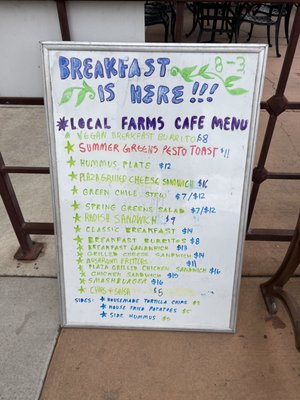 BREAKFAST 8-3
IS HERE!!!
*LOCAL FARMS CAFE MENU
VEGAN BREAKFAST BURRITO $8
SUMMER GREENS PESTO TOAST $11
HUMMUS PLATE $12
PLAZA GRILLED CHEESE SANDWICH $16
GREEN CHILE STEW $7/$12
SPRING GREENS SALAD $7/$12
RADISH SANDWICH $9
CLASSIC BREAKFAST $14
BREAKFAST BURRITOS $8
BREAKFAST SANDWICH $13
GRILLED CHEESE SANDWICH $14
MUSHROOM FRITTERS $11
PLAZA GRILLED CHICKEN SANDWICH $16
CHICKEN SANDWICH $15
SMASHBURGER $16
CHIPS & SALSA $5
SIDES: * HOUSEMADE TORTILLA CHIPS
* HOUSE FRIED POTATOES
* SIDE HUMMUS